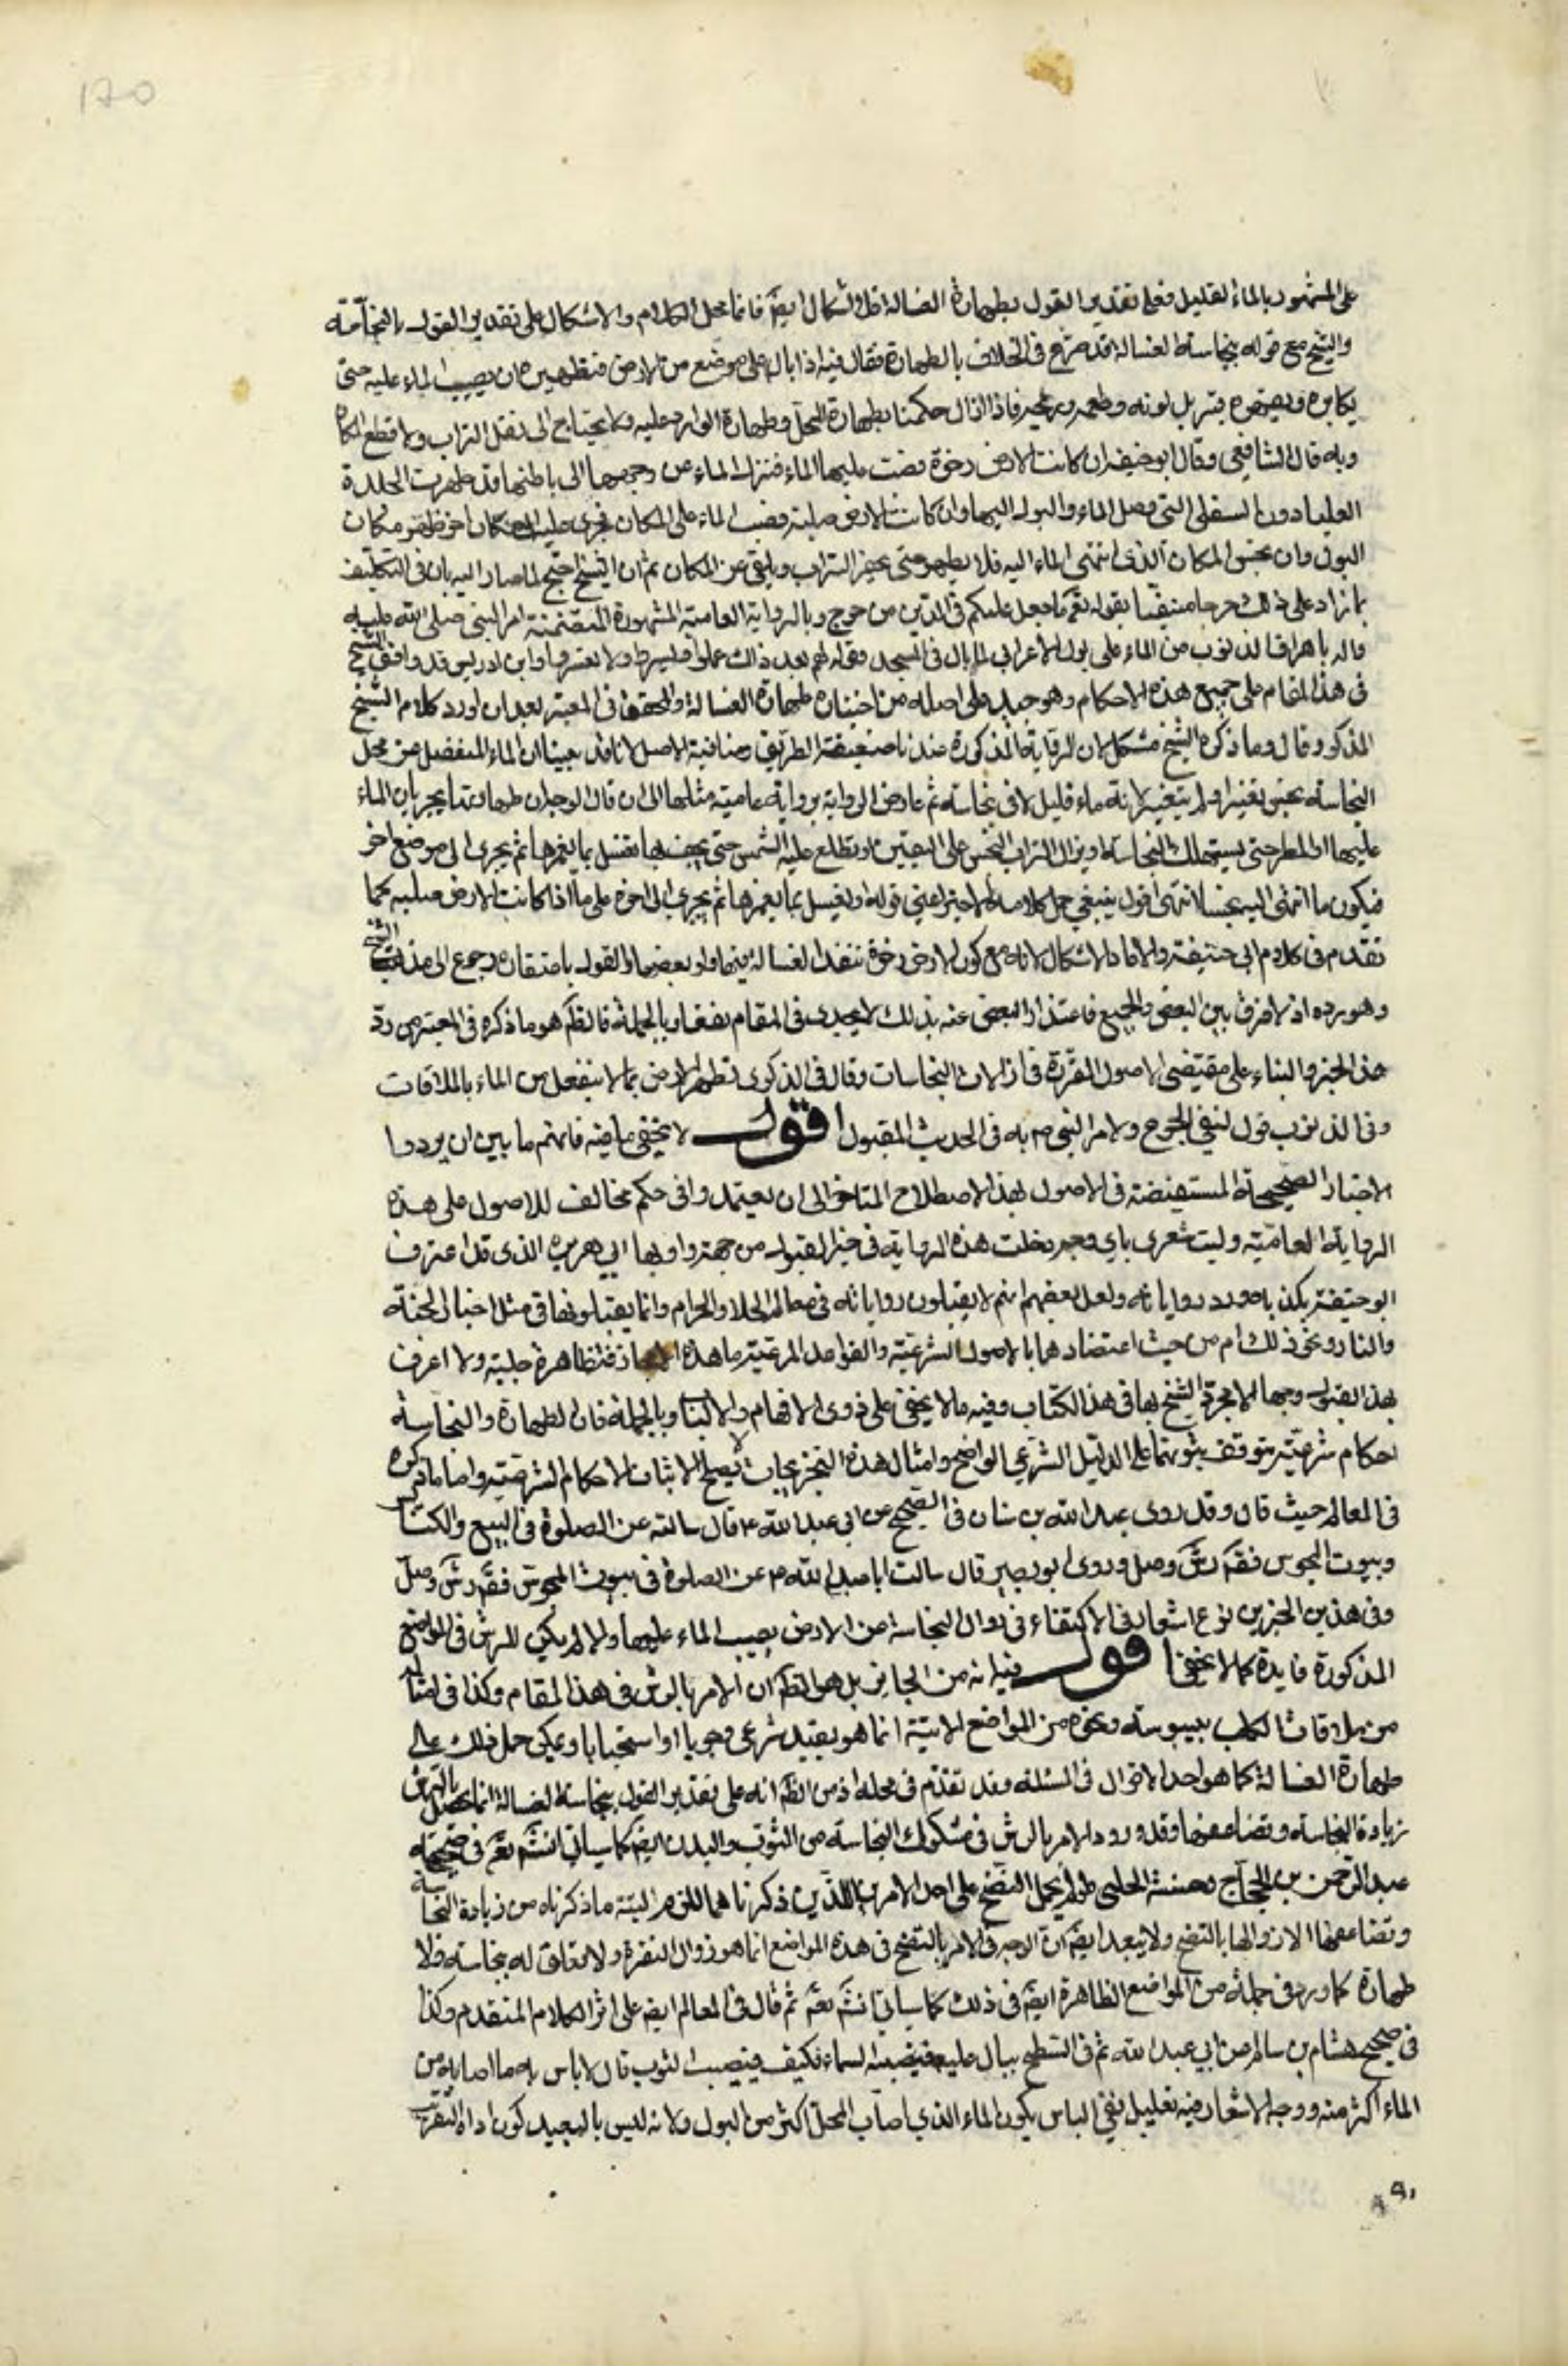 ١٢٥
على المشهور بالماء القليل فعلى تقدير القول بطهارة الغسالة فلا اشكال ايضً فانما محل الكلام والاشكال على تقدير القول بالنجاسة
والشيخ مع قوله بنجاسة الغسالة قد صرح في الخلاف بالطهارة فقال فيه اذا بال على موضع من الارض فتطهيره ان يصيب الماء عليه حتى
يكاثره ويغمره فيزيل لونه وطعمه وريحه فاذا زال حكمنا بطهارة المحل وطهارة الوارد عليه ولا يحتاج الى نقل التراب ولا قطع المكان
وبه قال الشافعي وقال ابو حنيفة ان كانت الارض رخوة فصب عليها الماء فنزل الماء عن وجهها الى باطنها فقد طهرت الجلدة
العليا دون السفلى التي وصل الماء والبول اليها وان كانت الارض صلبة فصب الماء على المكان فجرى عليه الى مكان اخر طهر مكان
البول وان نجس المكان الذي انتهى الماء اليه فلا يطهر حتى يحفر التراب ويلقى عن المكان ثم ان الشيخ احتج لما صار اليه بان في التكليف
بما زاد على ذلك حرجا منفيا بقوله تعم ما جعل عليكم في الدين من حرج وبالرواية العامية المشهورة المتضمنة امر النبي صلى الله عليه
واله باهراق الذنوب من الماء على بول الاعرابي لما بال في المسجد وقوله لهم بعد ذلك علموا ويسروا ولا تعسروا وابن ادريس قد وافق الشيخ
في هذا المقام على جميع هذه الاحكام وهو جيد على اصله من اختياره طهارة الغسالة والمحقق في المعتبر بعد ان اورد كلام الشيخ
المذكور قال وما ذكره الشيخ مشكل لان الرواية المذكورة عندنا ضعيفة الطريق ومنافية الاصل لانا قد بينا ان الماء المنفصل عن محل
النجاسة نجس تغير او لم يتغير لانه ماء قليل لاقى نجاسة ثم عارض الرواية برواية عامية مثلها الى ان قال الوجه ان طهارتها بجريان الماء
عليها او المطر حتى يستهلك النجاسة او يزال التراب النجس على اليقين او تطلع عليه الشمس حتى يجف بها او تغسل بما يغمرها ثم يجرى الى موضع اخر
فيكون ما انتهى اليه نجسا انتهى اقول ينبغي حمل كلامه الاخير اعني قوله او يغسل بما يغمرها ثم يجرى الى اخره على ما اذا كانت الارض صلبة كما
تقدم في كلام ابي حنيفة والا فالاشكال لانه مع كون الارض رخوة تنفذ الغسالة فيها ولو بعضها والقول باستقاره رجوع الى مذهب الشيخ
وهو يرده اذ لا فرق بين البعض والجميع فاعتذار البعض عنه بذلك لا يجدى في المقام نفعا وبالجملة فالظم هو ما ذكره في المعتبر من رد
هذا الخبر والبناء على مقتضى الاصول المقررة في ازالات النجاسات وقال في الذكرى تطهر الارض بما لا ينفعل من الماء بالملاقات
وفي الذنوب قول لنفي الحرج ولامر النبي ص به في الحديث المقبول اقول لا يخفى ما فيه فانهم ما بين ان يردوا
الاخبار الصحيحة المستفيضة في الاصول بهذا الاصطلاح المتاخر الى ان يعتمدوا في حكم مخالف للاصول على هذه
الرواية العامية وليت شعري باي وجه دخلت هذه الرواية في خبر القبول من جهة راويها ابي هريرة الذي قد اعترف
ابو حنيفة بكذبه ورد رواياته ولعل بعضهم انهم لا يقبلون رواياته في معالم الحلال والحرام وانما يقبلونها في مثل اخبار الجنة
والنار ونحو ذلك ام من حيث اعتضادها بالاصول الشرعية والقواعد المرعية ما هذه الا مجازفة ظاهرة جلية ولا اعرف
لهذا القبول وجها الا مجرد ذكر الشيخ لها في هذا الكتاب وفيه ما لا يخفى على ذوى الافهام والالباب وبالجملة فان الطهارة والنجاسة
احكام شرعية يتوقف ثبوتها على الدليل الشرعي الواضح وامثال هذه التخريجات لا تصلح لاثبات الاحكام الشرعية واما ما ذكره
في المعالم حيث قال وقد روى عبد الله بن سنان في الصحيح عن ابي عبد الله ع قال سالته عن الصلوة في البيع والكنائس
وبيوت المجوس فقم رش وصل وروى ابو بصير قال سالت ابا عبد الله ع عن الصلوة في بيوت المجوس فقم رش وصل
وفي هذين الخبرين نوع اشعار في الاكتفاء في زوال النجاسة من الارض بصب الماء عليها ولا لم يكن للرش في المواضع
المذكورة فايدة كما لا يخفى اقول فيه انه من الجايز بل هو الظم ان الامر بالرش في هذا المقام وكذا في امثاله
من ملاقات الكلب بيبوسة ونحوه من المواضع الاتية انما هو تعبد شرعي وجوبا او استحبابا ويمكن حمل ذلك على
طهارة الغسالة كما هو احد الاقوال في المسئلة وقد تقدم في محله اذ من الظم انه على تقدير القول بنجاسة الغسالة انما يحصل بالرش
زيادة النجاسة وتضاعفها وقد ورود الامر بالرش في مشكوك النجاسة من الثوب والبدن ايضً كما سياتي انشم تعم في صحيحة
عبد الرحمن بن الحجاج وحسنة الحلبي ولو لم يحمل النضح على احد الامرين اللذين ذكرناهما للزم البتة ما ذكرناه من زيادة النجاسة
وتضاعفها الا زوالها بالنضح ولا يبعد ايضً ان الوجه في الامر بالنضح في هذه المواضع انما هو زوال النفرة ولا تعلق له بنجاسة ولا
طهارة كما ورد في جملة من المواضع الظاهرة ايضً في ذلك كما سياتي انشم تعم ثم قال في المعالم ايضً على اثر الكلام المتقدم وكذا
في صحيح هشام بن سالم عن ابي عبد الله ع في السطح يبال عليه فيصيبه السماء فكيف فيصيب الثوب قال لا باس به ما اصابه من
الماء اكثر منه ووجه الاشعار فيه تعليل نفي الباس بكون الماء الذي اصاب المحل اكثر من البول ولانه ليس بالبعيد كون اداة التعريف